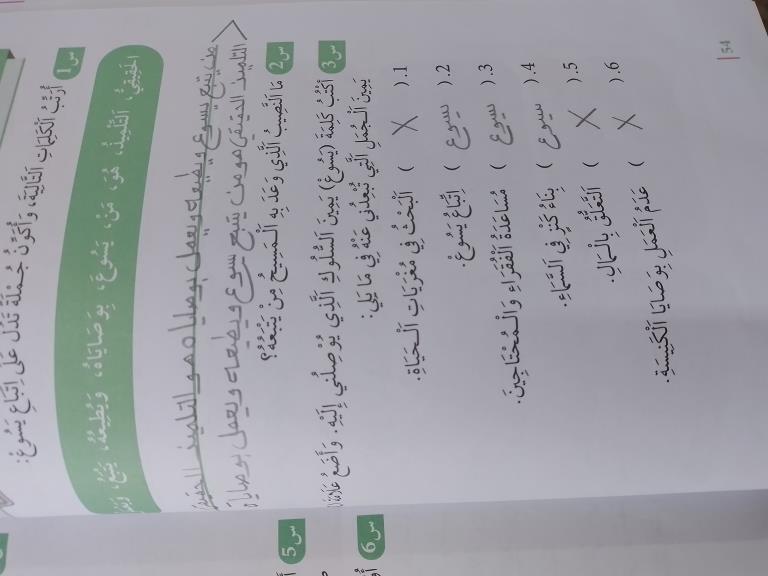 س1 أُرَتِّبُ الْكَلِمَاتِ التَّالِيَةَ، وَأُكَوِّنُ جُمْلَةً تَدُلُّ عَلَى اِتِّبَاعِ يَسُوعَ:
الْحَقِيقِيُّ، التِّلْمِيذُ، هُوَ، مَنْ، يَسُوعَ، بِوَصَايَاهُ، وَيُطِيعُهُ، يَتْبَعُ،
من يتبع يسوع ويطيعه ويعمل بوصاياه هو التلميذ الحقيقي
التلميذ الحقيقي هو من يتبع يسوع ويطيعه ويعمل بوصاياه
س2 مَا النَّصِيبُ الَّذِي وَعَدَ بِهِ الْمَسِيحُ مِنْ يَتْبَعُهُ؟
س3 أَكْتُبُ كَلِمَةَ (يَسُوعُ) يَمِينَ السُّلُوكِ الَّذِي يُوْصِلُنِي إِلَيْهِ. وَأَضَعُ
يَمِينَ الْجُمَلِ الَّتِي تُبْعِدُنِي عَنْهُ فِي مَا يَلِي:
1. ( X ) الْبَحْثُ فِي مُغْرَيَاتِ الْحَيَاةِ.
2. ( يسوع ) اِتِّبَاعُ يَسُوعَ.
3. ( يسوع ) مُسَاعَدَةُ الْفُقَرَاءِ وَالْمُحْتَاجِينَ.
4. ( يسوع ) بِنَاءُ كَنْزٍ فِي السَّمَاءِ.
5. ( X ) التَّعَلُّقُ بِالْمَالِ.
6. ( X ) عَدَمُ الْعَمَلِ بِوَصَايَا الْكَنِيسَةِ.
54
س5
س6